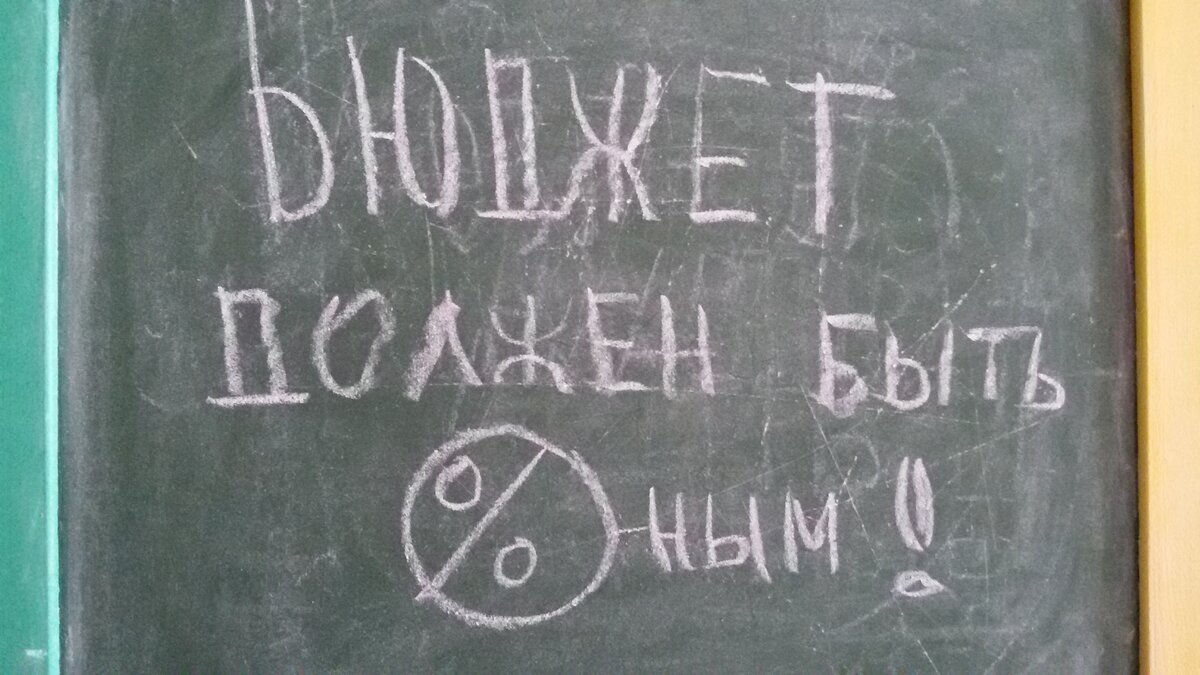 БЮДЖЕТ
ДОЛЖЕН БЫТЬ
%-НЫМ!